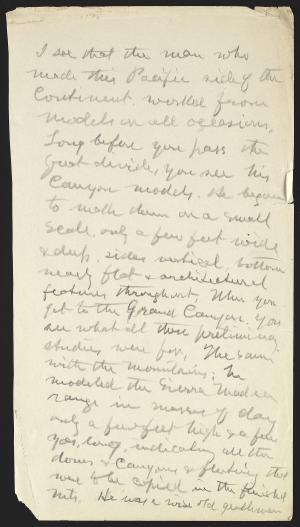 I see that the man who
made this Pacific side of the
Continent, worked from
models on all occasions.
Long before you pass the
great divide, you see his
Canyon models. He began
to work down on a small
scale, only a few feet wide
& deep, sides vertical, bottom
nearly flat & architectural
features throughout. When you
get to the Grand Canyon you
see what all those preliminary
studies were for. The same
with the mountains; he
modeled the Sierra Madre
range in masses of clay
only a few feet high & a few
yds. long, indicating all the
domes & canyons & fluting that
were to be copied in the finished
mts. He was a wise old gentleman